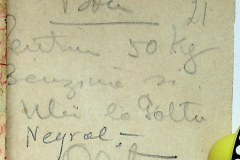 Bon 21
Pentru 50 Kg
Benzină și
Ulei la Tóltu
Neyral.-